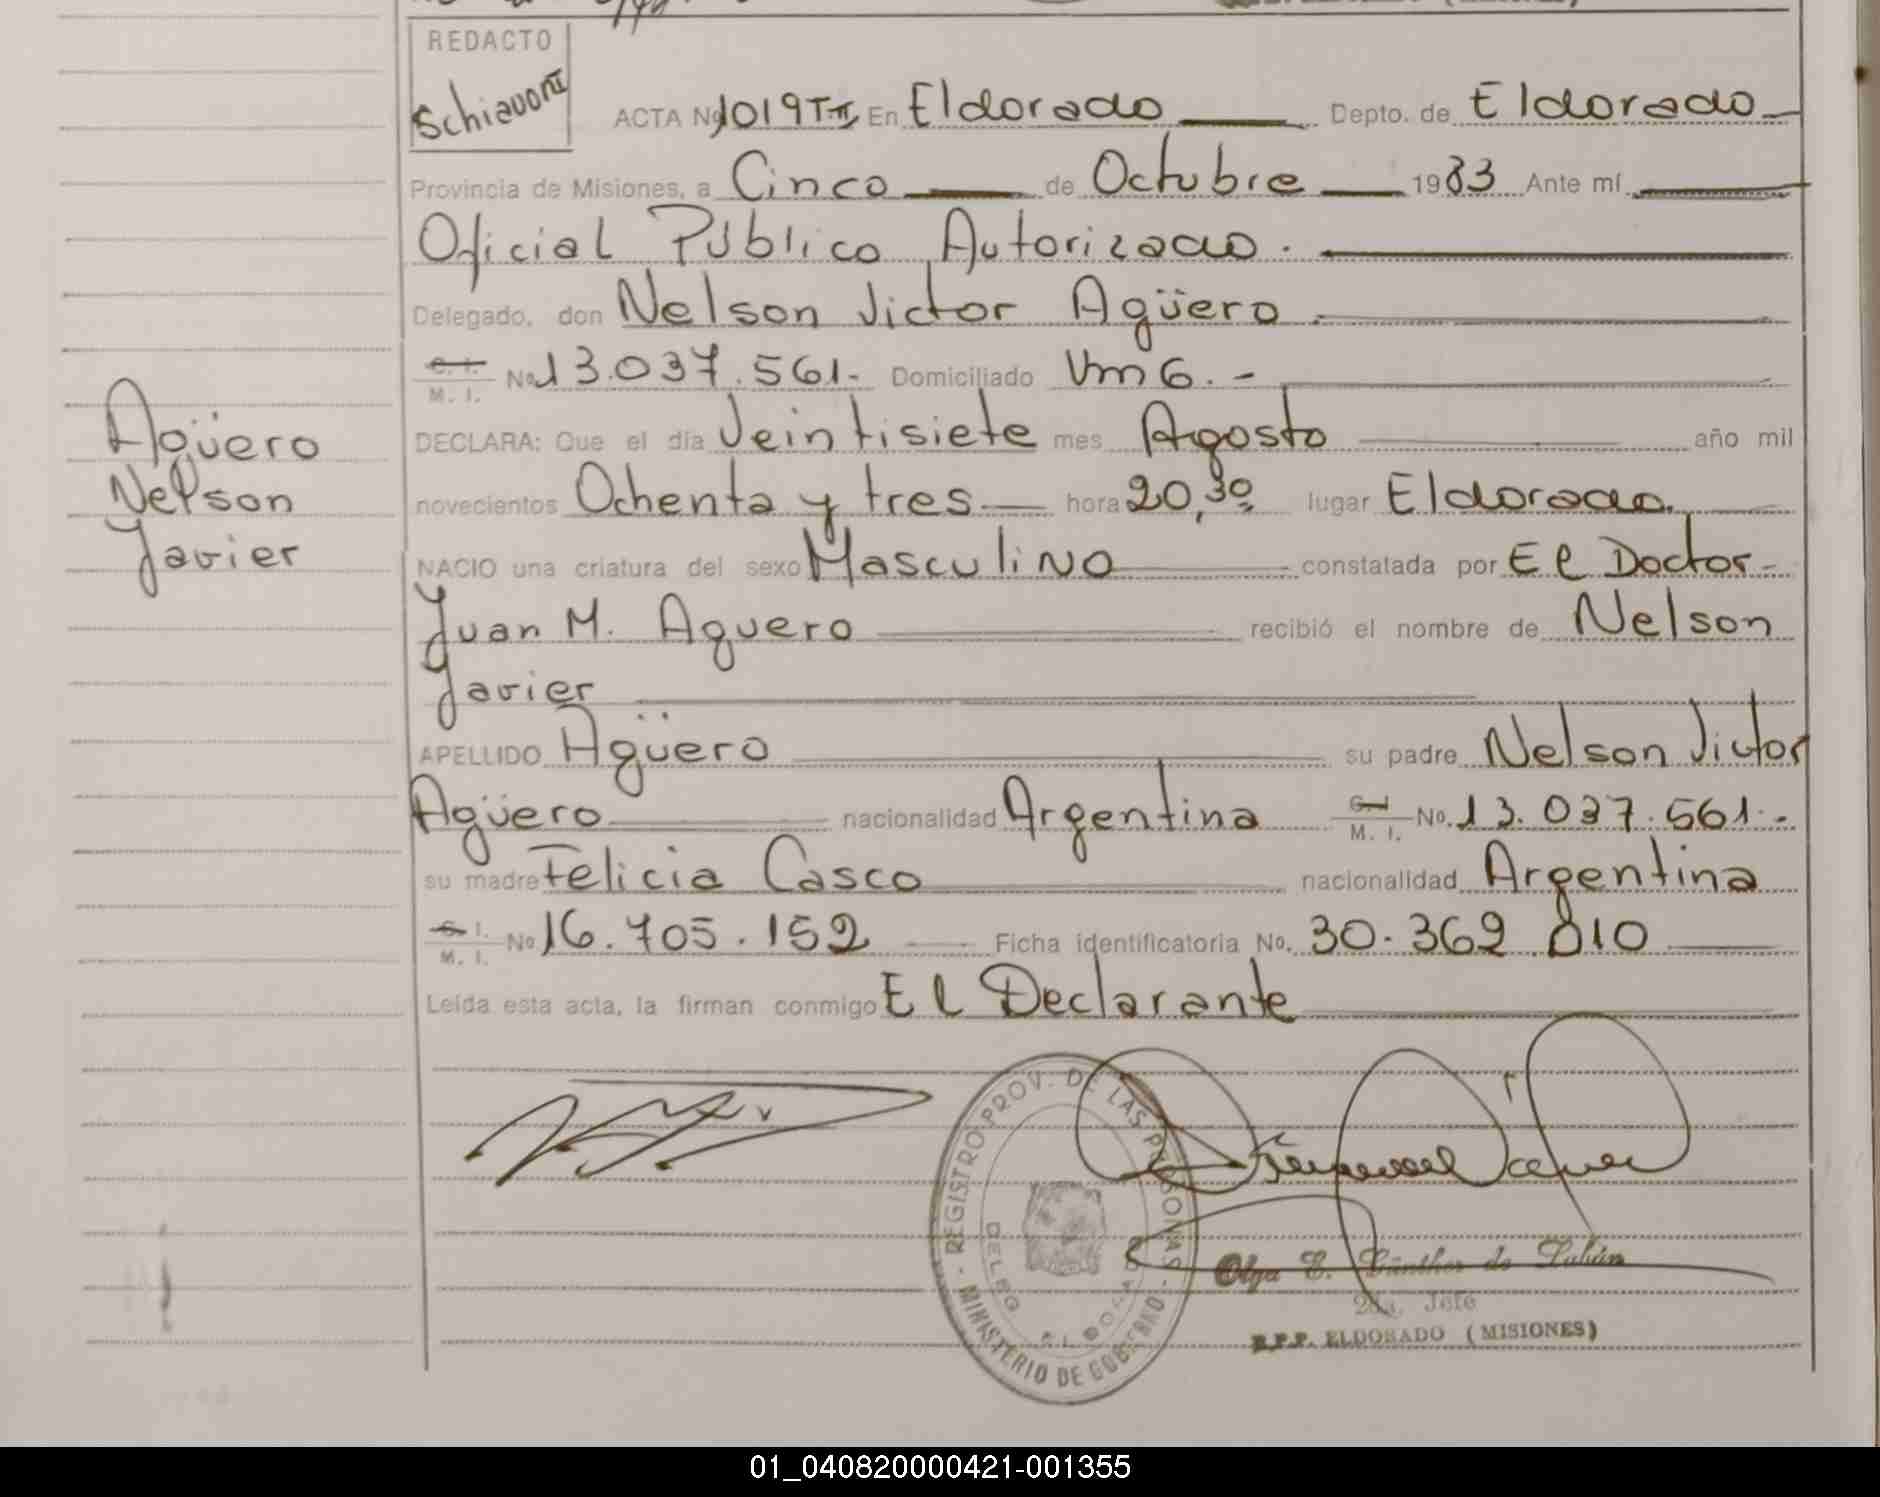 REDACTO
Schiavoni
ACTA No 1019 TII En Eldorado Depto. de Eldorado
Provincia de Misiones, a Cinco de Octubre 1983 Ante mí
Oficial Público Autorizado.
Delegado, don Nelson Victor Agüero
C. I. M. I. No 13.037.561.- Domiciliado Km 6.-
DECLARA: Que el día Veintisiete mes Agosto año mil
novecientos Ochenta y tres hora 20,30 lugar Eldorado.
NACIO una criatura del sexo Masculino constatada por El Doctor
Juan M. Aguero recibió el nombre de Nelson
Javier
APELLIDO Agüero su padre Nelson Victor
Agüero nacionalidad Argentina C. I. M. I. No. 13.037.561.-
su madre Felicia Casco nacionalidad Argentina
C. I. M. I. No 16.705.152 Ficha identificatoria No. 30.362.810
Leída esta acta, la firman conmigo El Declarante
Agüero
Nelson
Javier
REGISTRO PROV. DE LAS PERSONAS
MINISTERIO DE GOBIERNO
DELEG. ELDORADO
Olga E. Günther de
2da. Jefe
R.P.P. ELDORADO (MISIONES)
01_040820000421-001355